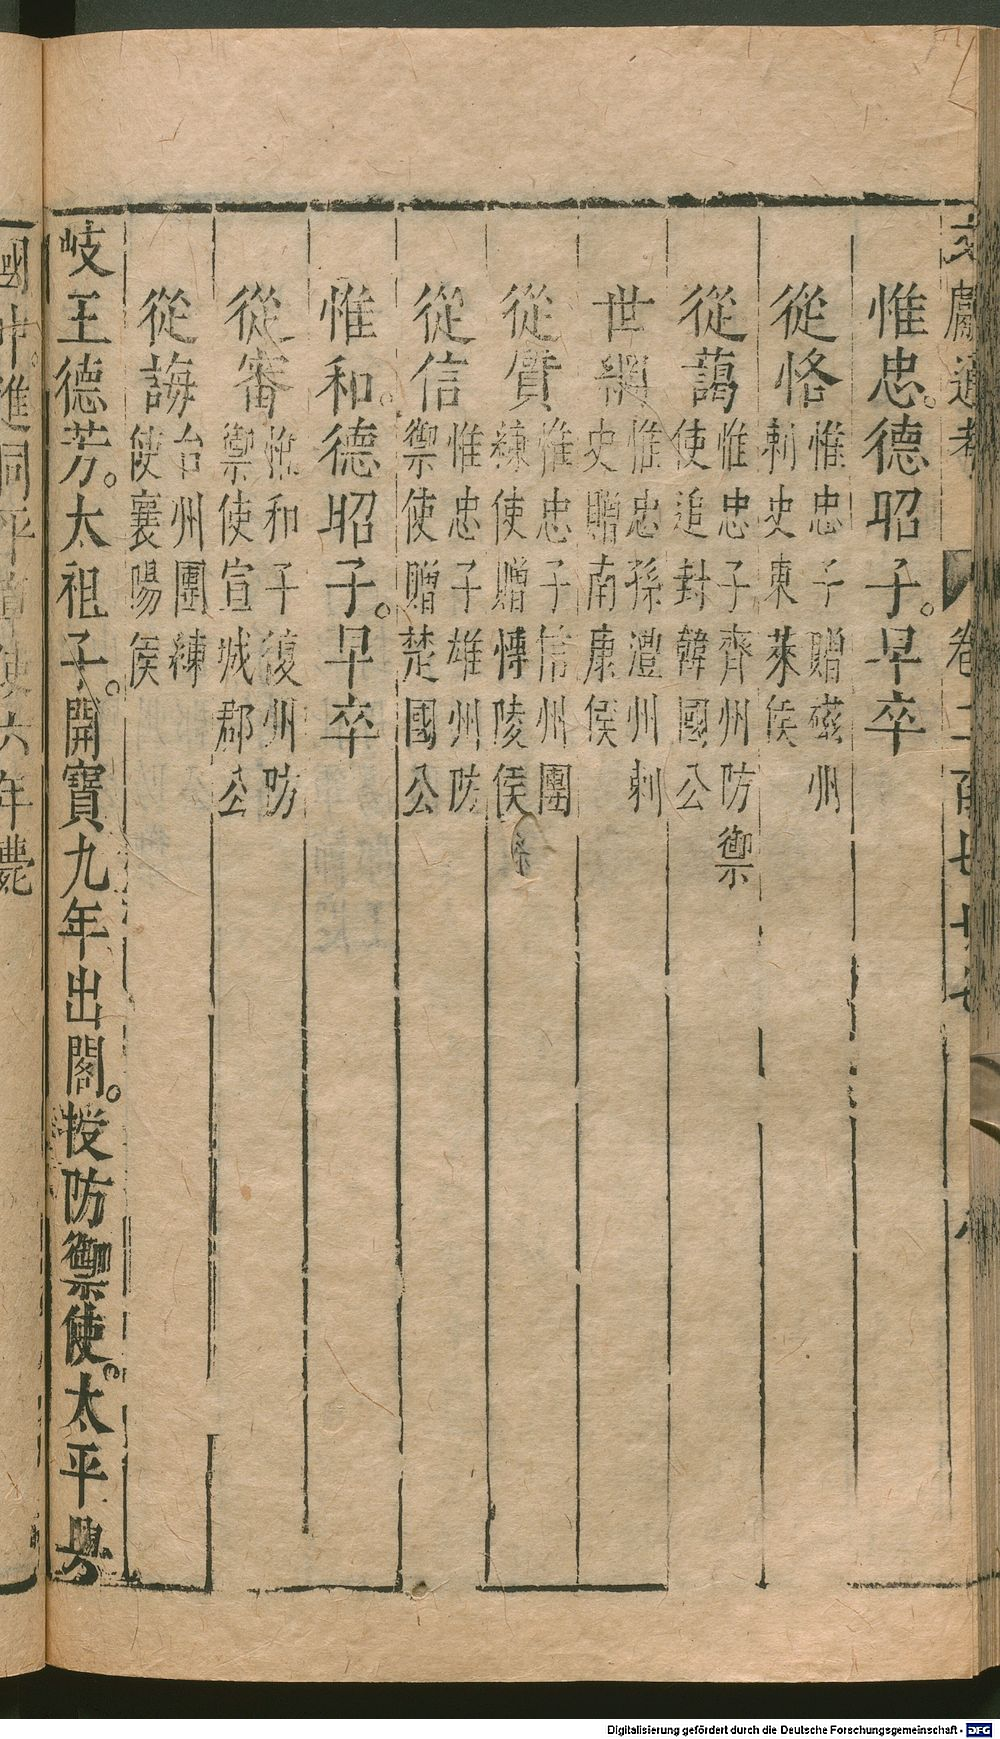 文獻通考 卷二百七十七 八
惟忠。德昭子。早卒
從恪 惟忠子贈磁州
刺史東萊侯
從藹 惟忠子齊州防禦
使追封韓國公
世網 惟忠孫澧州刺
史贈南康侯
從質 惟忠子信州團
練使贈博陵侯
從信 惟忠子雄州防
禦使贈楚國公
惟和。德昭子。早卒
從審 惟和子復州防
禦使宣城郡公
從誨 台州團練
使襄陽侯
岐王德芳。太祖子。開寶九年出閣。授防禦使。太平興
國中。進同平章使六年薨
Digitalisierung gefördert durch die Deutsche Forschungsgemeinschaft - DFG